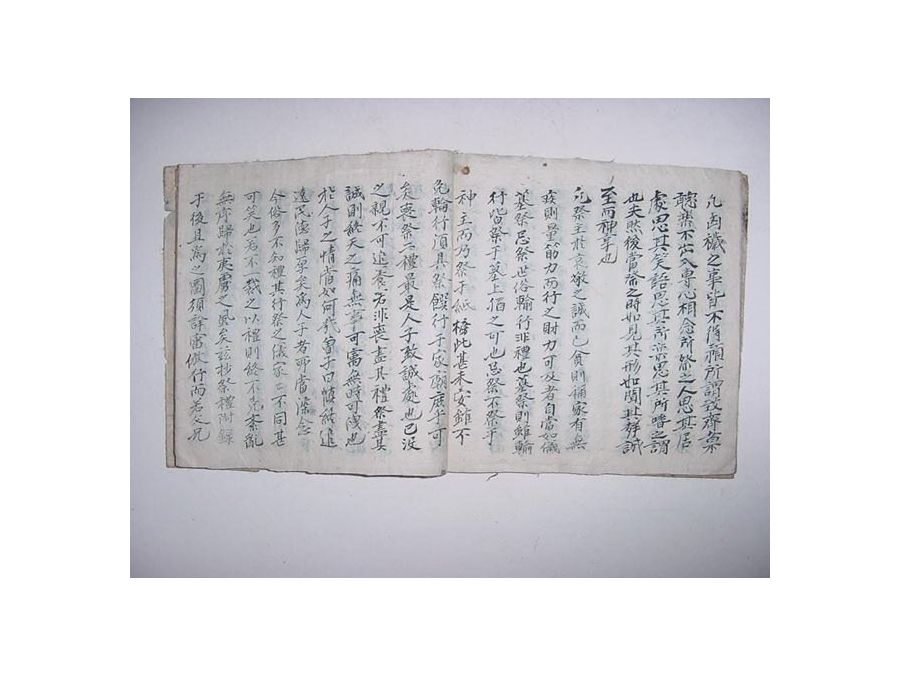 凡凶穢之事皆不得預所謂致齊集
聽樂不出入專心相念所祭之人思其居
處思其笑語思其所樂思其所嗜之謂
也夫然後當祭之時如見其形如聞其聲誠
至而神享也
凡祭主於哀敬之誠而已貧則稱家有無
疾則量筋力而行之財力可及者自當如儀
墓祭忌祭世俗輪行非禮也墓祭則雖輪
行皆祭于墓上猶之可也忌祭不祭于
神主而乃祭于紙榜此甚未安雖不
免輪行須具祭饌行于家廟庶乎可
矣喪祭二禮最是人子致誠處也已沒
之親不可追養若非喪盡其禮祭盡其
誠則終天之痛無事可寓無時可洩也
於人子之情當如何哉曾子曰愼終追
遠民德歸厚矣爲人子者所當深念
今俗多不知禮其行祭之儀家家不同甚
可笑也若不一裁之以禮則終不免紊亂
無序歸於夷虜之風矣玆抄祭禮附錄
于後且爲之圖須詳審倣行而若父兄